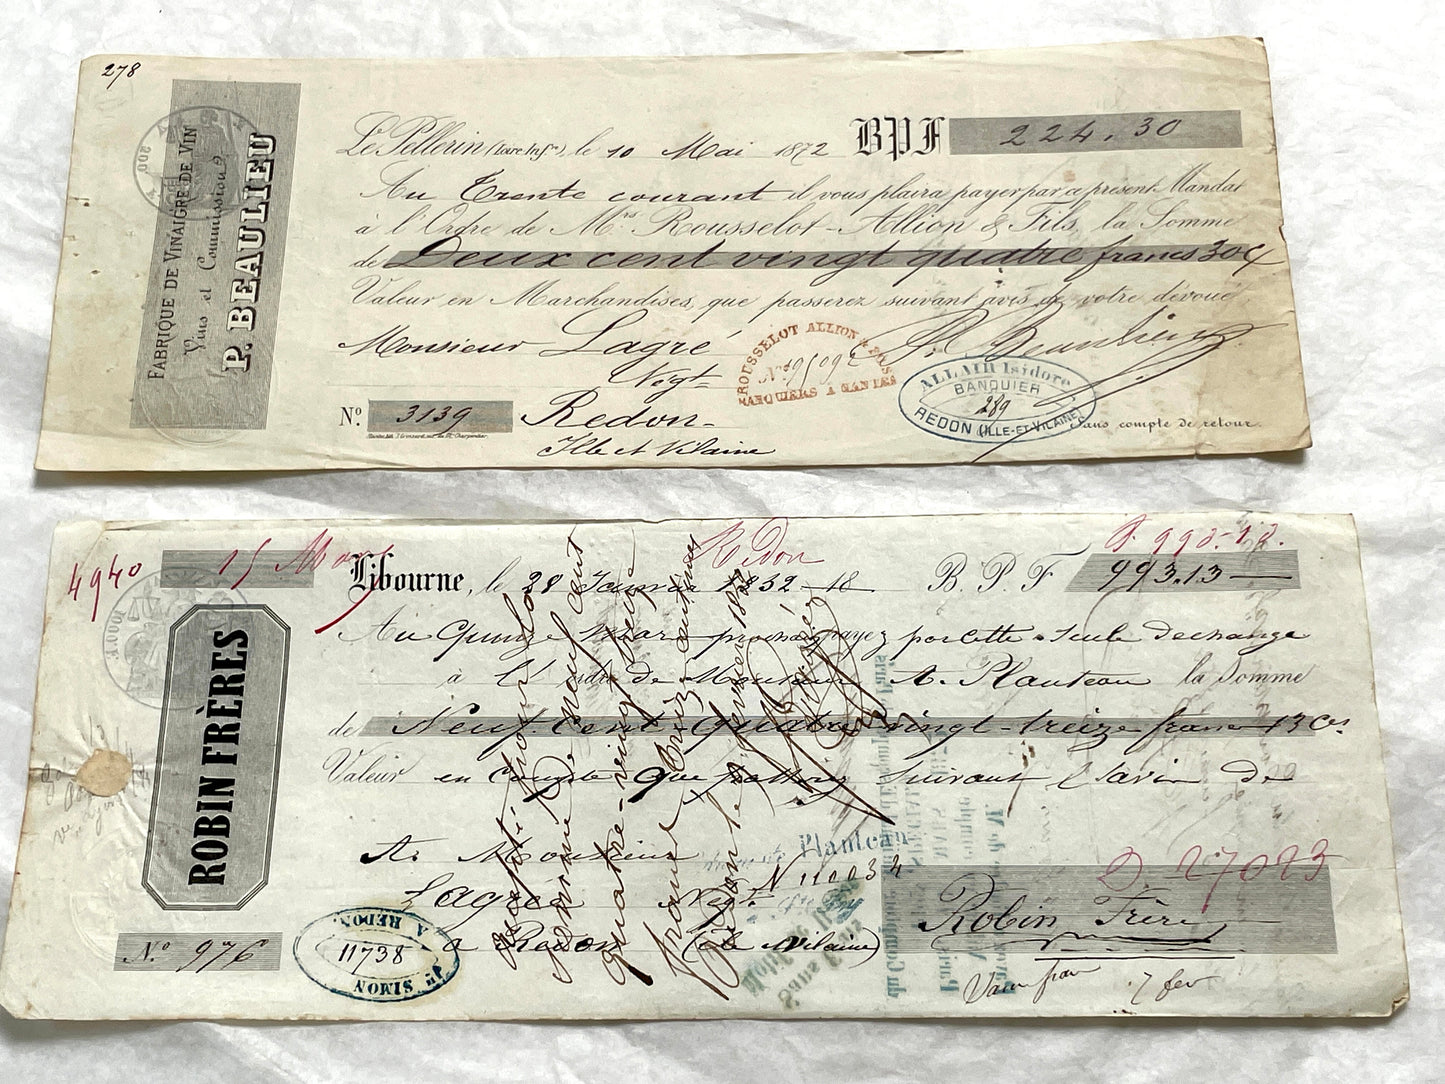 278
FABRIQUE DE VINAIGRE DE VIN
Vins et Commission
P. BEAULIEU
Le Pellerin (Loire Infre), le 10 Mai 1872 BPF 224.30
Au Trente courant il vous plaira payer par ce présent Mandat
à l'Ordre de Mrs Rousselot-Allion & Fils, la Somme
de Deux cent vingt quatre francs 30 c
Valeur en Marchandises, que passerez suivant avis de votre dévoué
Monsieur Lagré P. Beaulieu
Negt
No. 3139 Redon
Ille et Vilaine
ROUSSELOT ALLION & FILS
BANQUIERS A NANTES
ALLAIR Isidore
BANQUIER
289
REDON (ILLE-ET-VILAINE)
Sans compte de retour.
4940
15 Mars
Redon
993.13
Libourne, le 28 B. P. F 993.13
Au Quinze Mars prochain payez par cette seule de change
à l'ordre de Monsieur A. Planteau la Somme
de Neuf Cent Quatre vingt-treize francs 13 Ces
Valeur en Compte que passerez suivant l'avis de
ROBIN FRÈRES
A Monsieur
Planteau
N 110034
Lagrée Negt.
a Redon (Ille Vilaine)
27023
Robin Frères
No 976
A REDON
11738
SIMON
accepté pour la
somme de neuf cent
quatre-vingt treize
francs treize centimes
Redon le
7 fev